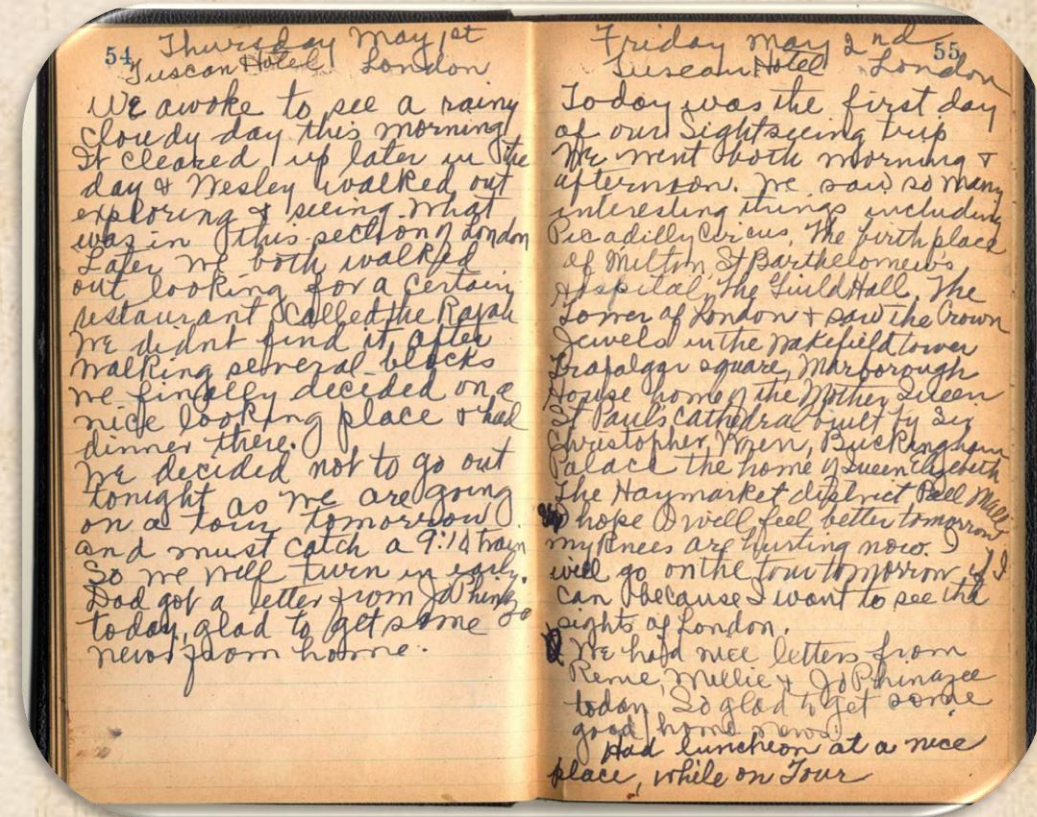 54
Thursday May 1st
Tuscan Hotel London
We awoke to see a rainy
cloudy day this morning
It cleared up later in the
day & Wesley walked out
exploring & seeing what
was in this section of London
Later we both walked
out looking for a certain
restaurant called the Rajah
We didnt find it, after
walking several blocks
we finally decided on a
nice looking place & had
dinner there.
We decided not to go out
tonight as we are going
on a tour tomorrow
and must catch a 9:10 train
So we will turn in early.
Dad got a letter from Jo Phinizee
today, glad to get some
news from home.
55
Friday May 2nd
Tuscan Hotel London
Today was the first day
of our Sightseeing trip
We went both morning &
afternoon. We saw so many
interesting things including
Picadilly Circus, The birthplace
of Milton, St Barthelomew's
Hospital, The Guild Hall, The
Tower of London & saw the Crown
Jewels in the Wakefield tower
Trafalgar square, Marborough
House home of the Mother Queen
St Paul's Cathedral built by Sir
Christopher Wren, Buckingham
Palace the home of Queen Elizebeth
The Haymarket district Pall Mall
hope I will feel better tomorrow
my knees are hurting now. I
will go on the tour tomorrow if I
can because I want to see the
sights of London.
We had nice letters from
Rene, Millie & Jo Phinazee
today. So glad to get some
good home news.
Had luncheon at a nice
place, while on Tour